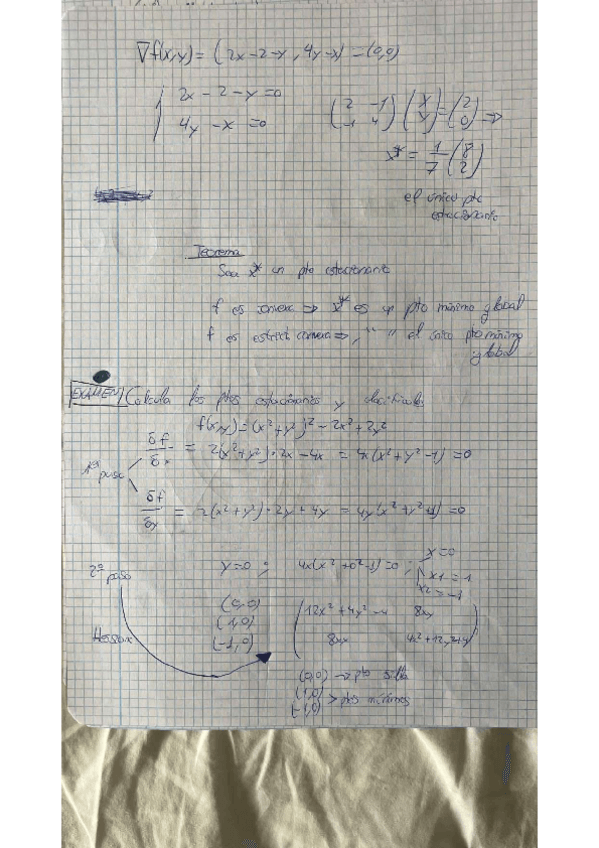 ∇f(x,y) = (2x-2-y, 4y-x) = (0,0)
2x-2-y=0
4y-x=0
(2 -1
-1 4) (x
y) = (2
0) ⇒
x* = 1/7 (8
2)
el único pto
estacionario
Teorema
Sea x* un pto estacionario
f es convexa ⇒ x* es un pto mínimo global
f es estrict convexa ⇒ " " el único pto mínimo
global
EXAMEN Calcula los ptos estacionarios y clasifícalos
f(x,y) = (x²+y²)² - 2x² + 2y²
1er paso
δf/δx = 2(x²+y²)·2x-4x = 4x(x²+y²-1) = 0
δf/δy = 2(x²+y²)·2y+4y = 4y(x²+y²+1) = 0
2º paso
y=0 ; 4x(x²+0²-1)=0 ;
x=0
x1=1
x2=-1
(0,0)
(1,0)
(-1,0)
Hessiana
(12x²+4y²-4 8xy
8xy 4x²+12y²+4)
(0,0) → pto silla
(1,0)
(-1,0) > ptos mínimos